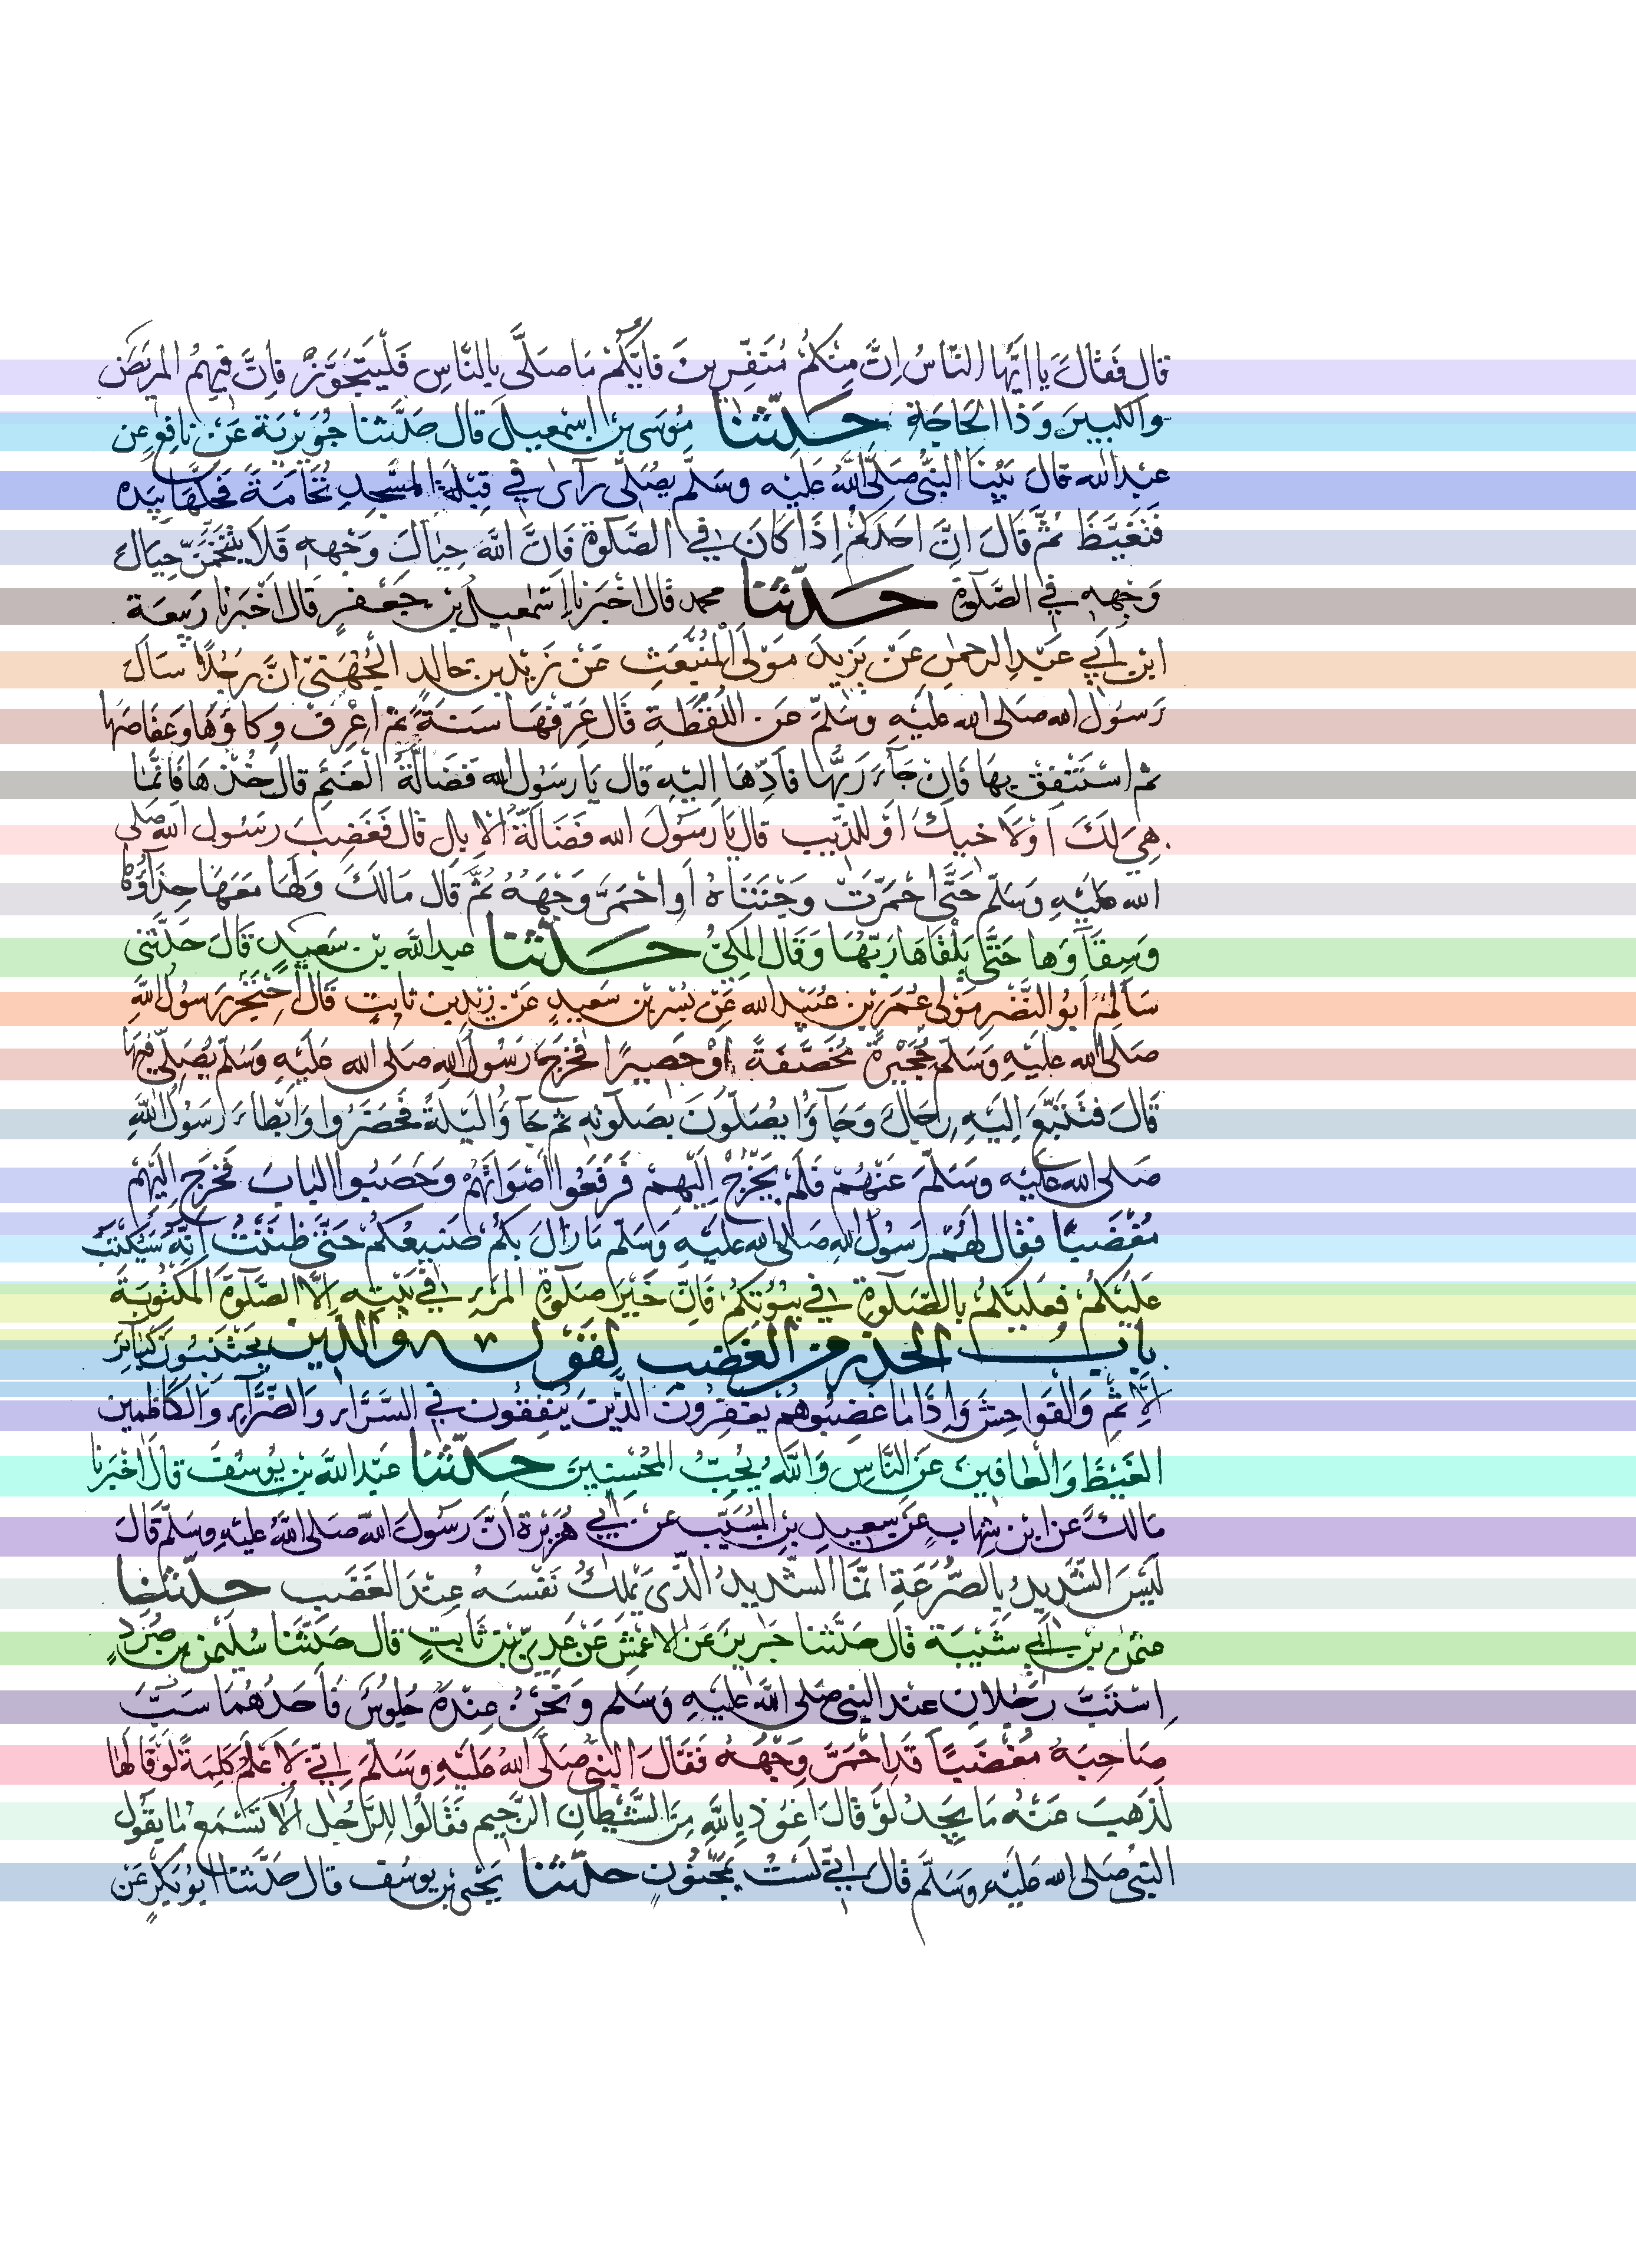 قال فَقَالَ يا ايّها النّاسُ اِنَّ مِنكُمْ مُتَفِّرِينَ فايّكُمْ مَا صَلّى بالنّاسِ فَلْيَتَجَوَّزْ فاِنَّ فِيهِمُ المَرِيضَ
والكَبِيرَ وَذا الحَاجَةِ حَدّثنا مُوسَى بن اسمعيل قال حدّثنا جُوَيْرِيَة عَنْ نافِعٍ عن
عبد الله قال بَيْنَا النّبيُّ صَلَّى اللهُ عَلَيْهِ وسَلّم يُصَلّى رَآى في قِبْلَةِ المَسْجِدِ نُخَامَةً فَحَكَّهَا بِيَدِه
فَتَغَيَّظَ ثمّ قَالَ اِنَّ احَدَكُمْ اِذَا كَانَ في الصَّلٰوةِ فَاِنَّ اللهَ حِيَالَ وَجْهِهِ فَلَا يَتَنَخَّمَنَّ حِيَالَ
وَجْهِهِ في الصَّلٰوةِ حَدّثنا محمد قال اخْبَرَنا اِسْمٰعيل بن جَعْفَرٍ قَالَ اخْبَرَنا رَبِيعَة
ابن اَبِي عَبْدِ الرحمٰنِ عَنْ يَزِيدَ مَوْلَى الْمُنْبَعِثِ عَنْ زَيْدِ بن خالدٍ الْجُهَنِيّ اَنَّ رَجُلًا سَاَلَ
رَسولَ الله صلى الله عليهِ وسَلّم عن اللُّقَطَةِ قَالَ عَرِّفْهَا سَنَةً ثمّ اعْرِفْ وِكَاوَهَا وَعِفَاصَهَا
ثم اسْتَنْفِقْ بِهَا فَاِنْ جَآءَ رَبُّهَا فاَدِّهَا اليْهِ قال يَا رسُولَ الله فَضَالّةُ الغَنَمِ قالَ خُذْهَا فَاِنّمَا
هِيَ لَكَ اَوْ لِاَخِيكَ اَوْ للذّيبِ قال يَا رَسُولَ الله فَضَالّةُ الاِبِلِ قال فَغَضِبَ رسُولُ اللهِ صلى
الله عليه وَسَلّم حَتَّى احْمَرّتْ وَجْنَتَاهُ اَوِ احْمَرَّ وَجْهُهُ ثُمَّ قال مَالَكَ وَلَهَا مَعَهَا حِذَآؤُهَا
وَسِقَآؤهَا حَتَّى يَلْقَاهَا رَبّهَا وَقَالَ المكيُّ حَدّثنا عبد الله بن سَعِيدٍ قَالَ حَدّثَنِى
سَالِمٌ اَبُو النَّضْرِ مَوْلَى عُمَرَ بن عُبَيْدِ الله عَنْ بُسْرِ بن سَعِيدٍ عَنْ زَيْدِ بن ثَابِتٍ قَالَ احْتَجَرَ رَسُولُ اللهِ
صَلى الله عليهِ وَسَلّم حُجَيْرَةً مُخَصَّفَةً اَوْ حَصِيرًا فخَرَجَ رَسُولُ الله صلى الله عَلَيْهِ وَسَلّم يُصَلّي فِيهَا
قَالَ فَتَتَبَّعَ اِلَيْهِ رِجَالٌ وَجَآؤُا يُصَلّونَ بِصَلٰوتِهِ ثم جَآؤُا لَيْلَةً فَحَضَرُوا وَاَبْطَاءَ رَسُولُ اللهِ
صَلى الله عليه وسَلّمَ عَنْهُمْ فَلَمْ يَخْرُجْ اِلَيْهِمْ فَرَفَعُوا اَصْوَاتَهُمْ وَحَصَبُوا البَابَ فَخَرَجَ اِلَيْهِمْ
مُغْضَبًا فَقَال لَهُمْ رَسُولُ الله صَلى الله عَلَيْهِ وَسَلّم مَا زَالَ بِكُمْ صَنِيعُكُمْ حَتّى ظَنَنْتُ اَنّهُ سَيُكْتَبُ
عَلَيْكُمْ فَعَلَيْكُمْ بِالصَّلٰوةِ في بُيُوتِكُمْ فَاِنّ خَيْرَ صَلٰوةِ المَرْءِ في بَيْتِهِ اِلّا الصّلٰوةَ المَكْتُوبَةَ
باب الحذر من الغضب لقوله والذين يَجْتَنِبُونَ كَبَآئِرَ
الاِثْمِ وَالفَوَاحِشَ وَاِذَا مَا غَضِبُوا هُمْ يَغْفِرُونَ الّذِينَ يُنْفِقُونَ فِي السَّرَّاءِ وَالضّرَّآءِ وَالكَاظِمِينَ
الغَيْظَ وَالْعَافِينَ عَنِ النَّاسِ وَاللهُ يُحِبُّ المُحْسِنِينَ حَدّثنا عَبْدُ اللهِ بن يُوسُفَ قالَ اخْبَرَنا
مَالِكٌ عَنِ ابْنِ شِهَابٍ عَنْ سَعِيدِ بنِ المُسَيّبِ عن اَبِي هُرَيْرَةَ اَنَّ رَسُولَ اللهِ صَلى اللهُ عليهِ وسَلّم قَالَ
لَيْسَ الشّدِيدُ بالصُّرَعَةِ انمَّا الشّدِيدُ الّذِي يَمْلِكُ نَفْسَهُ عِنْدَ الغَضَبِ حدّثنا
عثمٰن بن اَبِي شَيْبَةَ قال حَدّثنا جَرِيرٌ عَنِ الاعْمَشِ عَن عَدِيّ بن ثَابِتٍ قال حَدّثَنَا سُلَيْمٰن بن صُرَدٍ
اِسْتَبَّ رَجُلانِ عند النبيّ صَلى اللهُ عَلَيْهِ وَسَلم وَنَحْنُ عِنْدَهُ جُلُوسٌ فَاَحَدُهُمَا سَبَّ
صَاحِبَهُ مُغْضَبًا قَدِ احْمَرَّ وَجْهُهُ فَقَالَ النبيُّ صَلّى اللهُ عَلَيْهِ وَسَلّمَ اِنِّي لَاَعْلَمُ كَلِمَةً لَوْ قَالَهَا
لذَهَبَ عَنْهُ مَا يَجِدُ لَوْ قَالَ اَعُوذُ بِاللهِ مِنَ الشّيْطَانِ الرَّجِيمِ فَقَالُوا لِلرَّجُلِ اَلَا تَسْمَعُ مَا يَقُولُ
النّبيُّ صَلى الله عَلَيْهِ وسَلّم قَالَ اِنِّي لَسْتُ بِمَجْنُونٍ حدّثنا يَحْيَى بن يوسُف قال حَدّثنا ابُو بَكْرٍ عَنْ